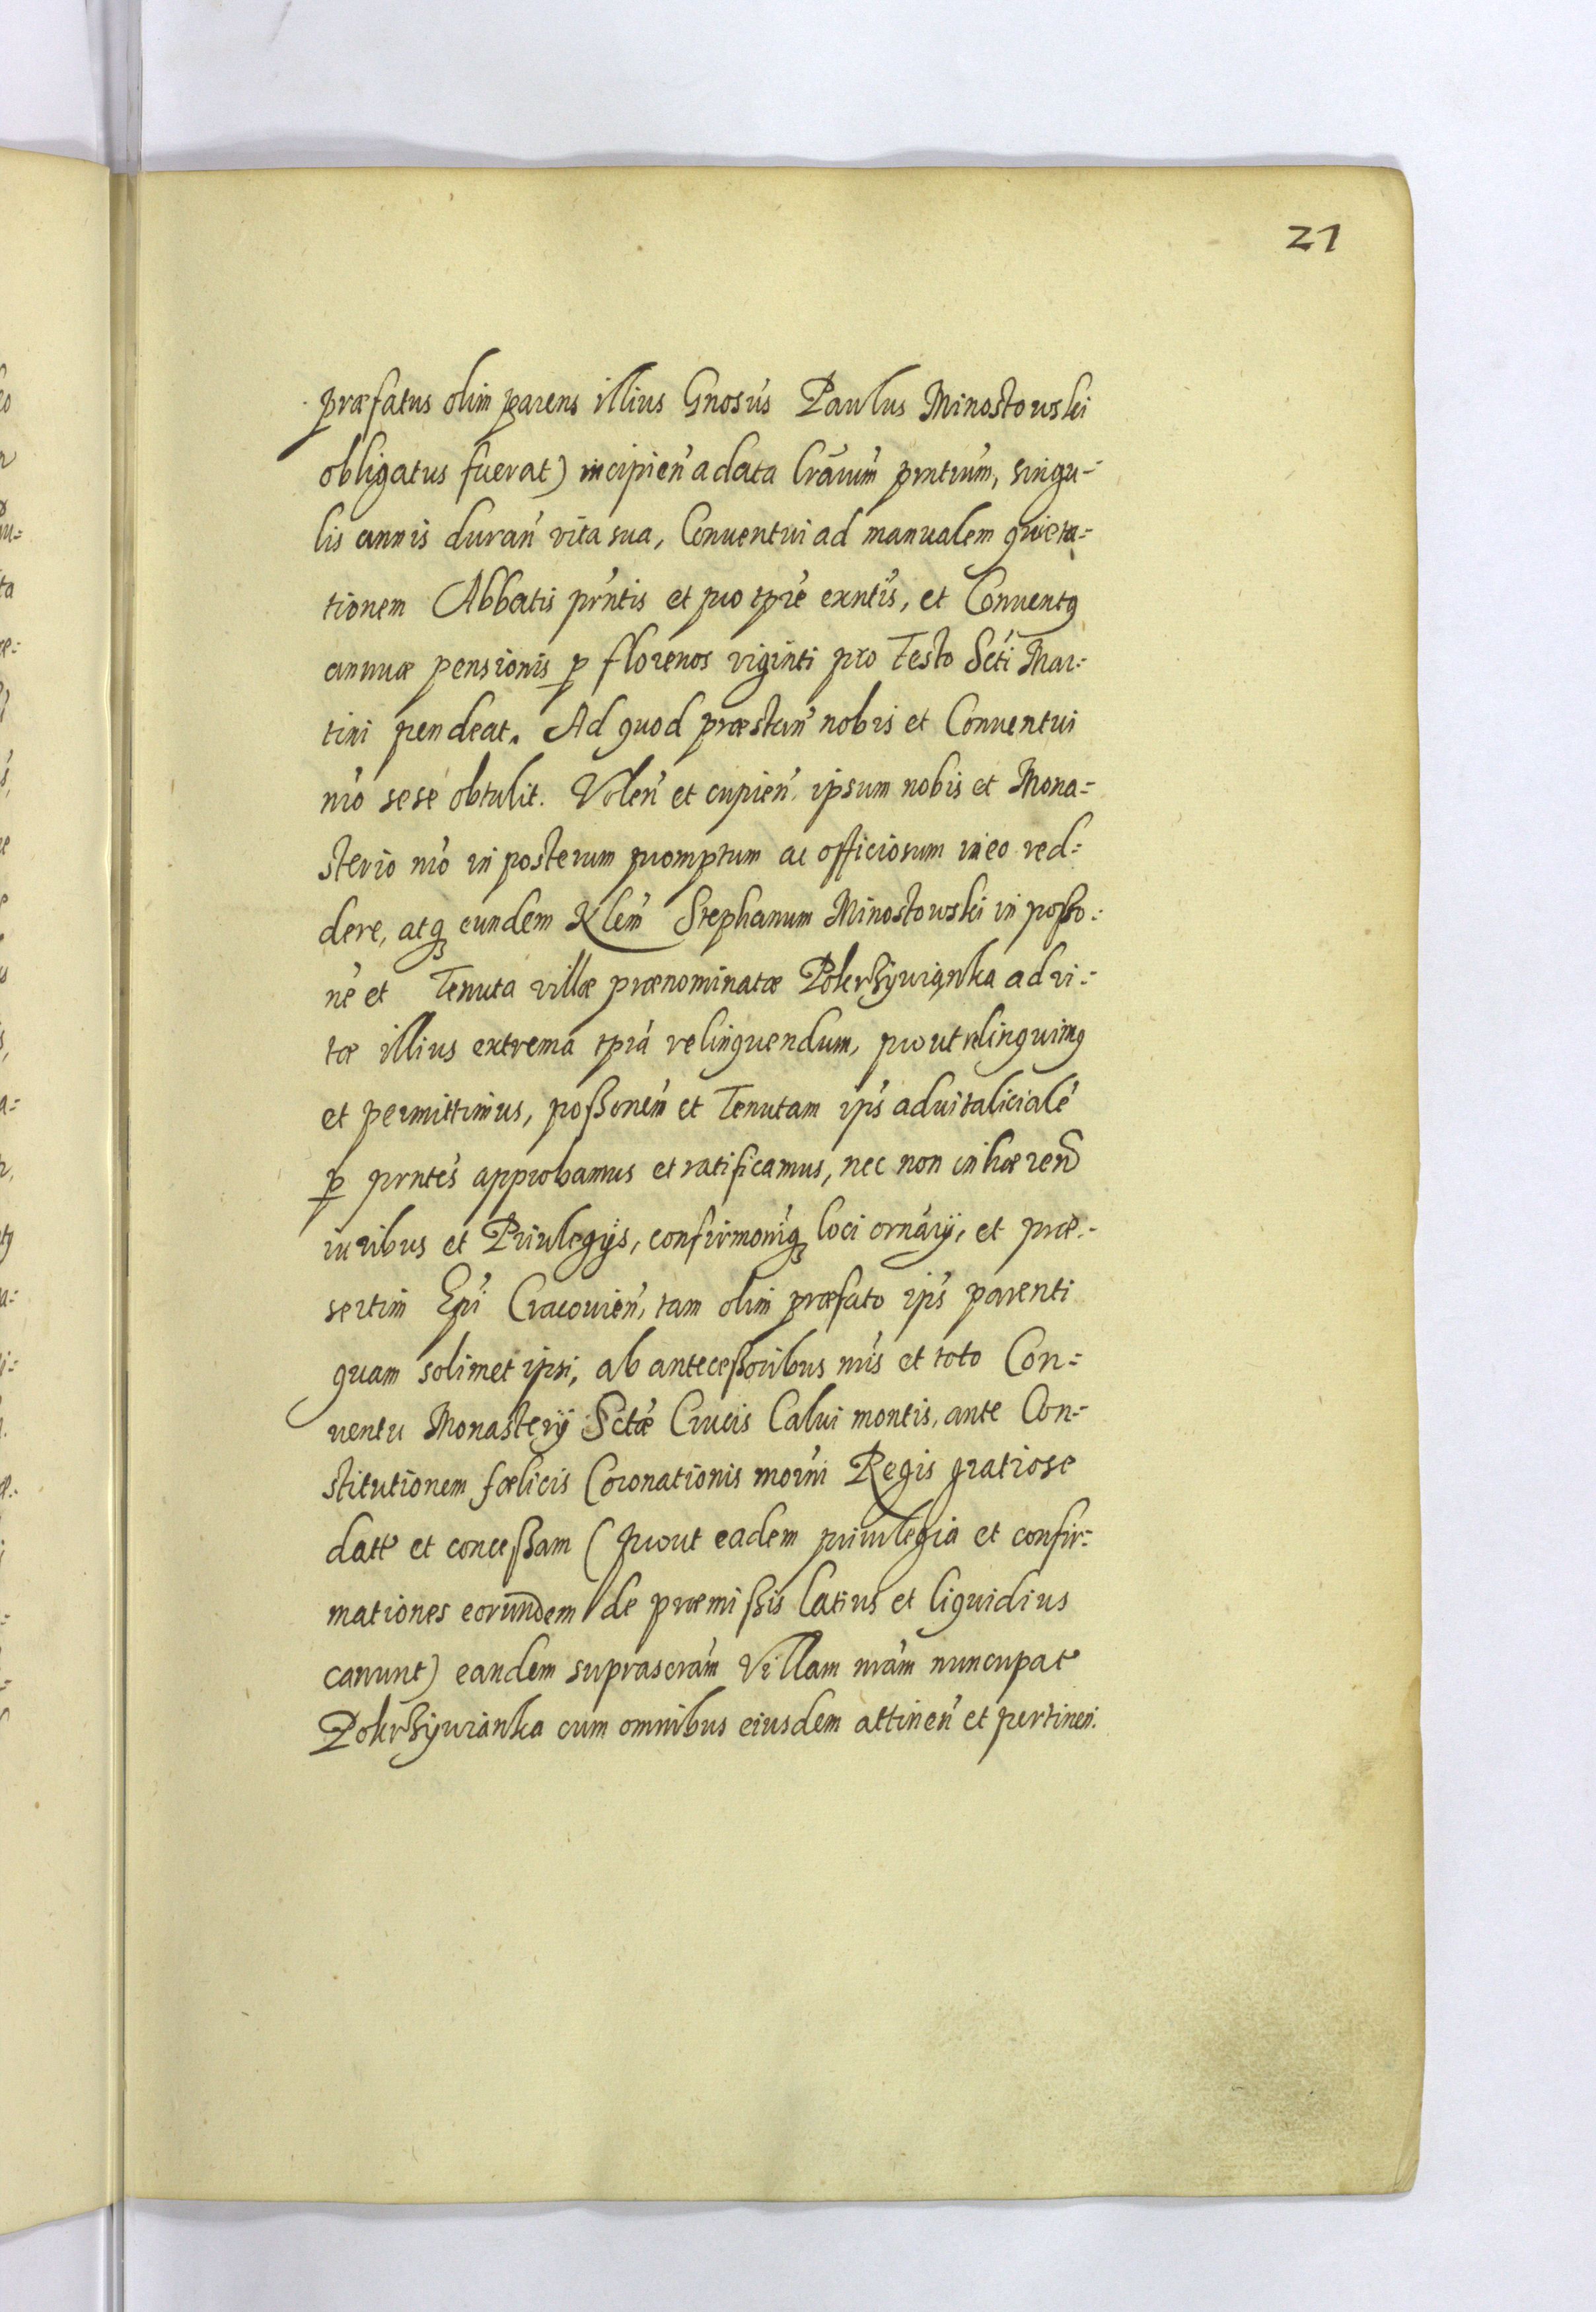 21
præfatus olim parens illius Gnosús Paulus Minostowski
obligatus fuerat) incipień a data lrárúm pntiúm, singu-
lis annis durań vita sua, Conuentui ad manualem quieta-
tionem Abbatis prńtis et pro tpré exntís, et Conuentq
annuæ pensionis p florenos viginti pro Festo Scti Mar-
tini pendeat. Ad quod præstań nobis et Conuentui
nró sese obtulit. Voleń et cupień ipsum nobis et Mona-
sterio nró in posterum promptum ac officiosum in eo red-
dere, atq eundem Nlem Stephanum Minostowski in posso-
né et Tenuta villæ prænominatæ Pokrsywianka ad vi-
tæ illius extrema tprá relinquendum, prout relinquimq
et permittimus, poßoném et Tenutam ips aduitalicialé
p prntés approbamus et ratificamus, nec non inhæreń
iuribus et Priuilegijs, confirmoníq loci ornárij, et præ-
sertim Epi Cracouień, tam olim præfato ips parenti
quam solimet ipsi, ab anteceßoribus nrís et toto Con-
uentu Monasterij Sctæ Crucis Calui montis, ante Con-
stitutionem fœlicis Coronationis moderni Regis gratiose
datt et conceßam (prout eadem priuilegia et confir-
mationes eorundem de præmißis latius et liquidius
canunt) eandem suprascrám Villam nrám nuncupat
Pokrsywianka cum omnibus eiusdem attineń et pertineń.